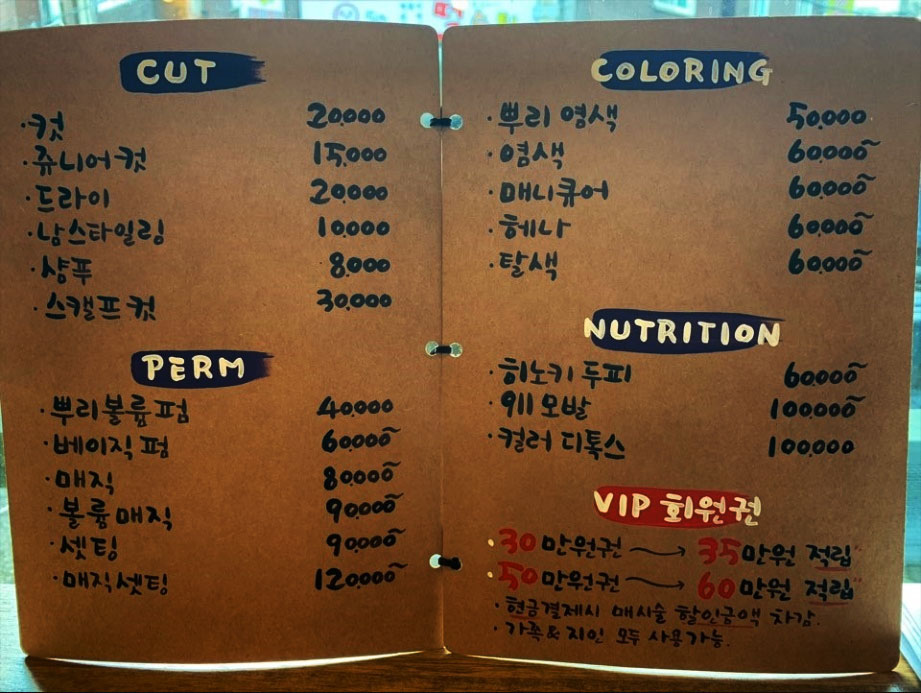 CUT
·컷 20,000
·쥬니어컷 15,000
·드라이 20,000
·남스타일링 10,000
·샴푸 8,000
·스캘프컷 30,000
PERM
·뿌리볼륨펌 40,000
·베이직펌 60,000~
·매직 80,000~
·볼륨매직 90,000~
·셋팅 90,000~
·매직셋팅 120,000~
COLORING
·뿌리 염색 50,000
·염색 60,000~
·매니큐어 60,000~
·헤나 60,000~
·탈색 60,000~
NUTRITION
·히노키두피 60,000~
·911모발 100,000~
·컬러 디톡스 100,000
VIP 회원권
·30만원권 → 35만원 적립"
·50만원권 → 60만원 적립"
·현금결제시 매시술 할인금액 차감.
·가족&지인 모두 사용가능.